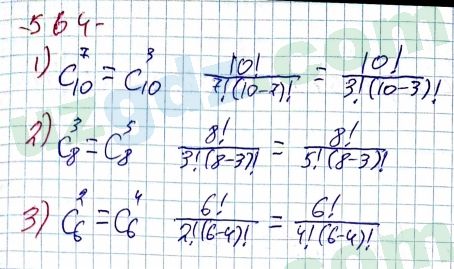 -564-
1) C₁₀⁷ = C₁₀³ 10!/7!(10-7)! = 10!/3!(10-3)!
2) C₈³ = C₈⁵ 8!/3!(8-3)! = 8!/5!(8-3)!
3) C₆² = C₆⁴ 6!/2!(6-4)! = 6!/4!(6-4)!